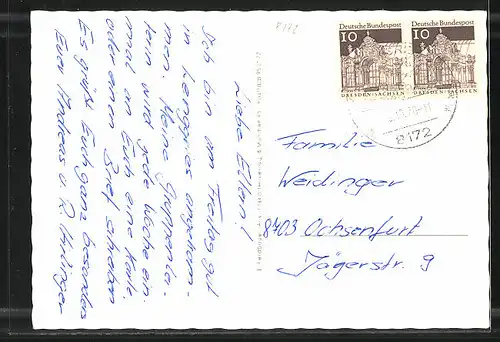 8172
Liebe Eltern!
Ich bin am Freitag gut
in Lenggries angekom-
men. Meine Gruppenlei-
terin wird jede Woche ein-
mal an Euch eine Karte
oder einen Brief schreiben
Es grüßt Euch ganz besonders
Euer Andreas u.
Deutsche Bundespost
10
DRESDEN-SACHSEN
Deutsche Bundespost
10
DRESDEN-SACHSEN
8172
Familie
Weidinger
8703 Ochsenfurt
Jägerstr. 9